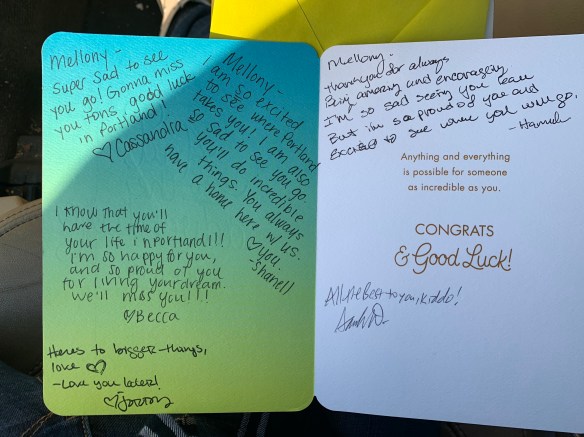 Mellony -
Super sad to see
you go! Gonna miss
you tons, good luck
in Portland!
♡Cassandra
Mellony -
I am so excited
to see where Portland
takes you! I am also
so sad to see you go.
you'll do incredible
things. You always
have a home here w/ us.
♡ you.
- Shanell
I know that you'll
have the time of
your life in Portland!!!
I'm so happy for you,
and so proud of you
for living your dream.
We'll miss you!!!
♡Becca
Heres to bigger things,
love ♡
- Love you laters!
Mellony -
Thank you for always
being amazing and encouraging
I'm so sad seeing you leave
But i'm so proud of you and
excited to see where you will go.
- Hannah
Anything and everything
is possible for someone
as incredible as you.
CONGRATS
& Good Luck!
All the Best to you, kiddo!